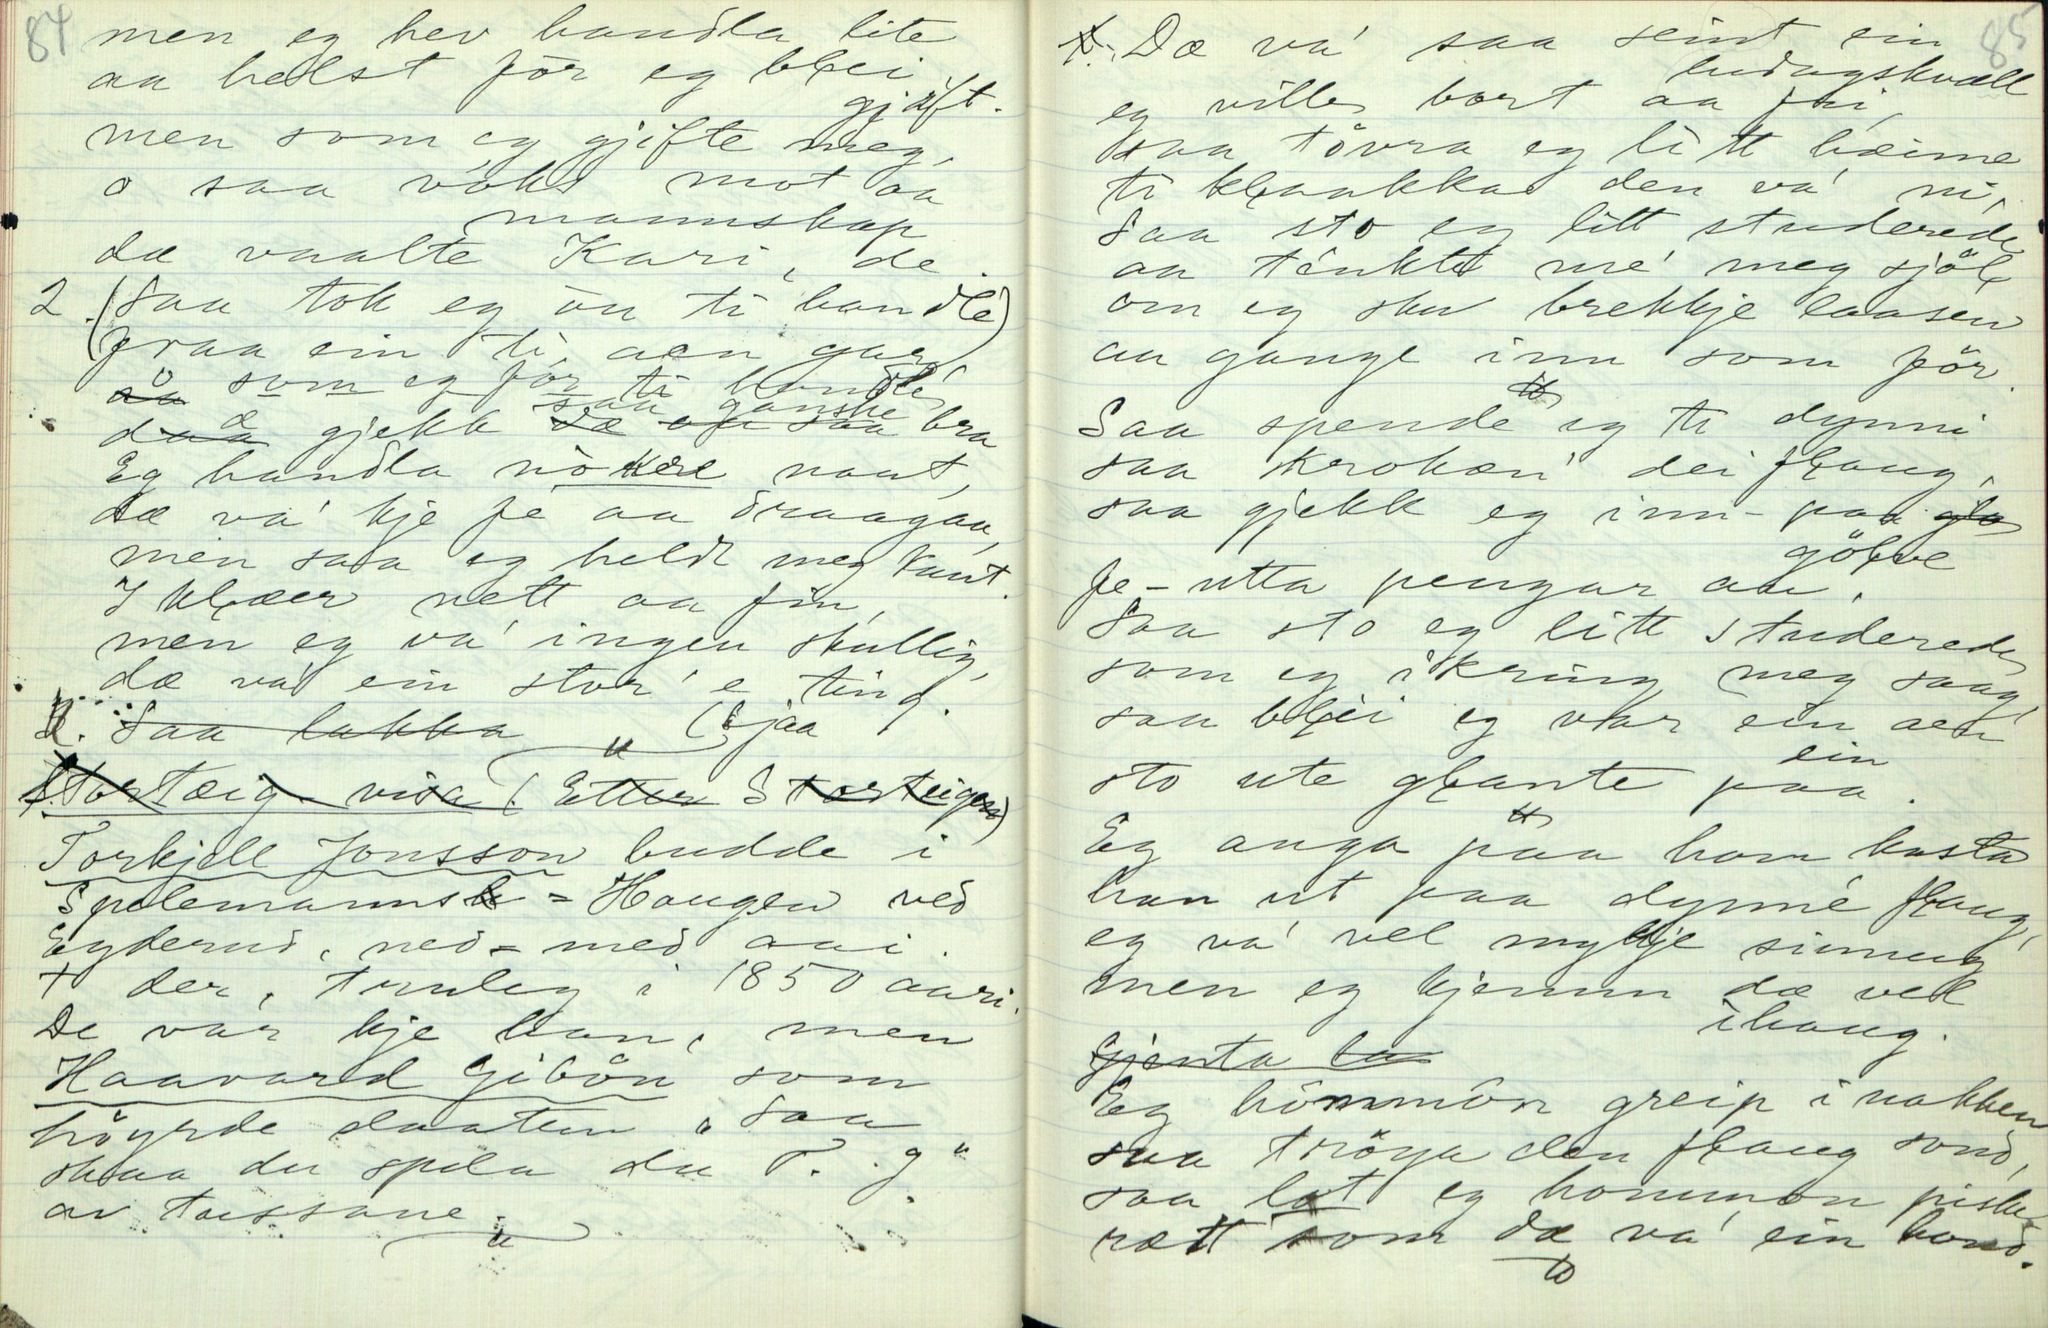 84
men eg hev handla lite
aa helst för eg blei
gjift.
men som eg gjifte meg,
o saa voks mot aa
mannskap
da vaalte Kari, de.
2. (Saa tok eg ùn ti handle)
(fraa ein ti, aen gar
som eg för ti handlé
dæ gjekk saa ganske bra
Eg handla nòkre naut,
dæ va' kje fe aa draagaa,
men saa eg heldt meg kaut.
I klæer nett aa fin,
men eg va' ingen skullig,
dæ va' ein stor' e ting.
Saa lakka (Sjaa
Stortæig visa (Etter Storteigen)
Torkjell Jonsson budde i
Spelemanns-Haugen ved
Eyderud, ned-med aai.
+ der, truleg i 1850 aari.
De var kje han, men
Haavard Giböen som
höyrde slaatten "Saa
skaa du spela du T. G."
av tussane.
85
Dæ va' saa seint ein
ludagskvæll
eg ville bort aa fri,
saa tövra eg litt heime
ti klaakka den va' ni,
Saa sto eg litt studerede
aa tenkte me' meg sjöl
om eg sku brekkje laasen
aa gange inn som för.
Saa spende eg ti dynni
saa krokæn' dei flaug,
saa gjekk eg inn- paa
gölve
fe-utta pengar aa,
Saa sto eg litt studerede
som eg ikring meg saag,
saa blei eg var ein aen
ein
sto ute glante paa.
Eg anga paa hom kasta
han ut paa dynné flaug,
eg va' vel mykje sinnug
men eg kjenun dæ vel
ihaug.
Gjenta la
Eg hommòn greip i nakken
saa tröya den flaug sond,
saa lat eg hommòn piske
rætt som dæ va' ein hond.